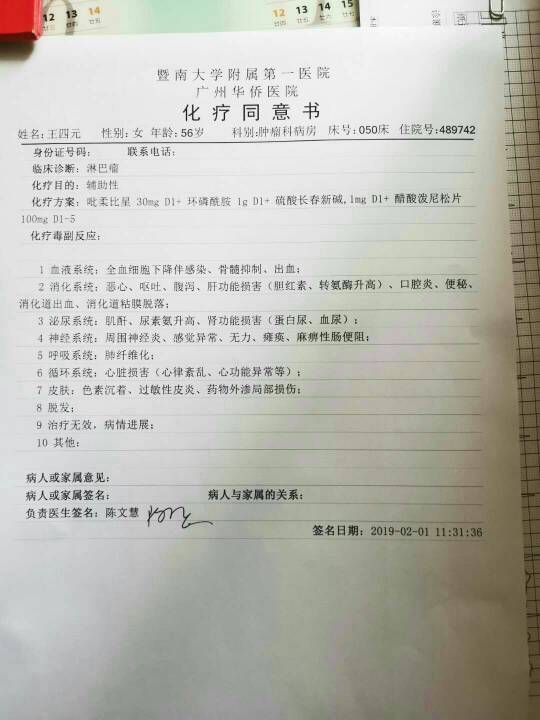 12 13 14
12 13 14
暨南大学附属第一医院
广州华侨医院
化疗同意书
姓名:王四元 性别:女 年龄:56岁 科别:肿瘤科病房 床号:050床 住院号:489742
身份证号码: 联系电话:
临床诊断:淋巴瘤
化疗目的:辅助性
化疗方案:吡柔比星 30mg D1+ 环磷酰胺 1g D1+ 硫酸长春新碱,1mg D1+ 醋酸泼尼松片
100mg D1-5
化疗毒副反应:
1 血液系统:全血细胞下降伴感染、骨髓抑制、出血;
2 消化系统:恶心、呕吐、腹泻、肝功能损害(胆红素、转氨酶升高)、口腔炎、便秘、
消化道出血、消化道粘膜脱落;
3 泌尿系统:肌酐、尿素氨升高、肾功能损害(蛋白尿、血尿);
4 神经系统:周围神经炎、感觉异常、无力、瘫痪、麻痹性肠便阻;
5 呼吸系统:肺纤维化;
6 循环系统:心脏损害(心律紊乱、心功能异常等);
7 皮肤:色素沉着、过敏性皮炎、药物外渗局部损伤;
8 脱发;
9 治疗无效,病情进展;
10 其他:
病人或家属意见:
病人或家属签名: 病人与家属的关系:
负责医生签名:陈文慧
签名日期:2019-02-01 11:31:36